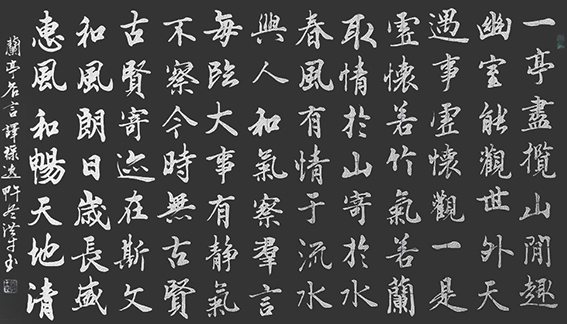 一亭盡攬山閒趣
幽室能觀世外天
遇事虛懷觀一是
虛懷若竹氣若蘭
取情於山寄於水
春風有情于流水
與人和氣察羣言
每臨大事有靜氣
不察今時無古賢
古賢寄迹在斯文
和風朗日歲長盛
惠風和暢天地清
蘭亭